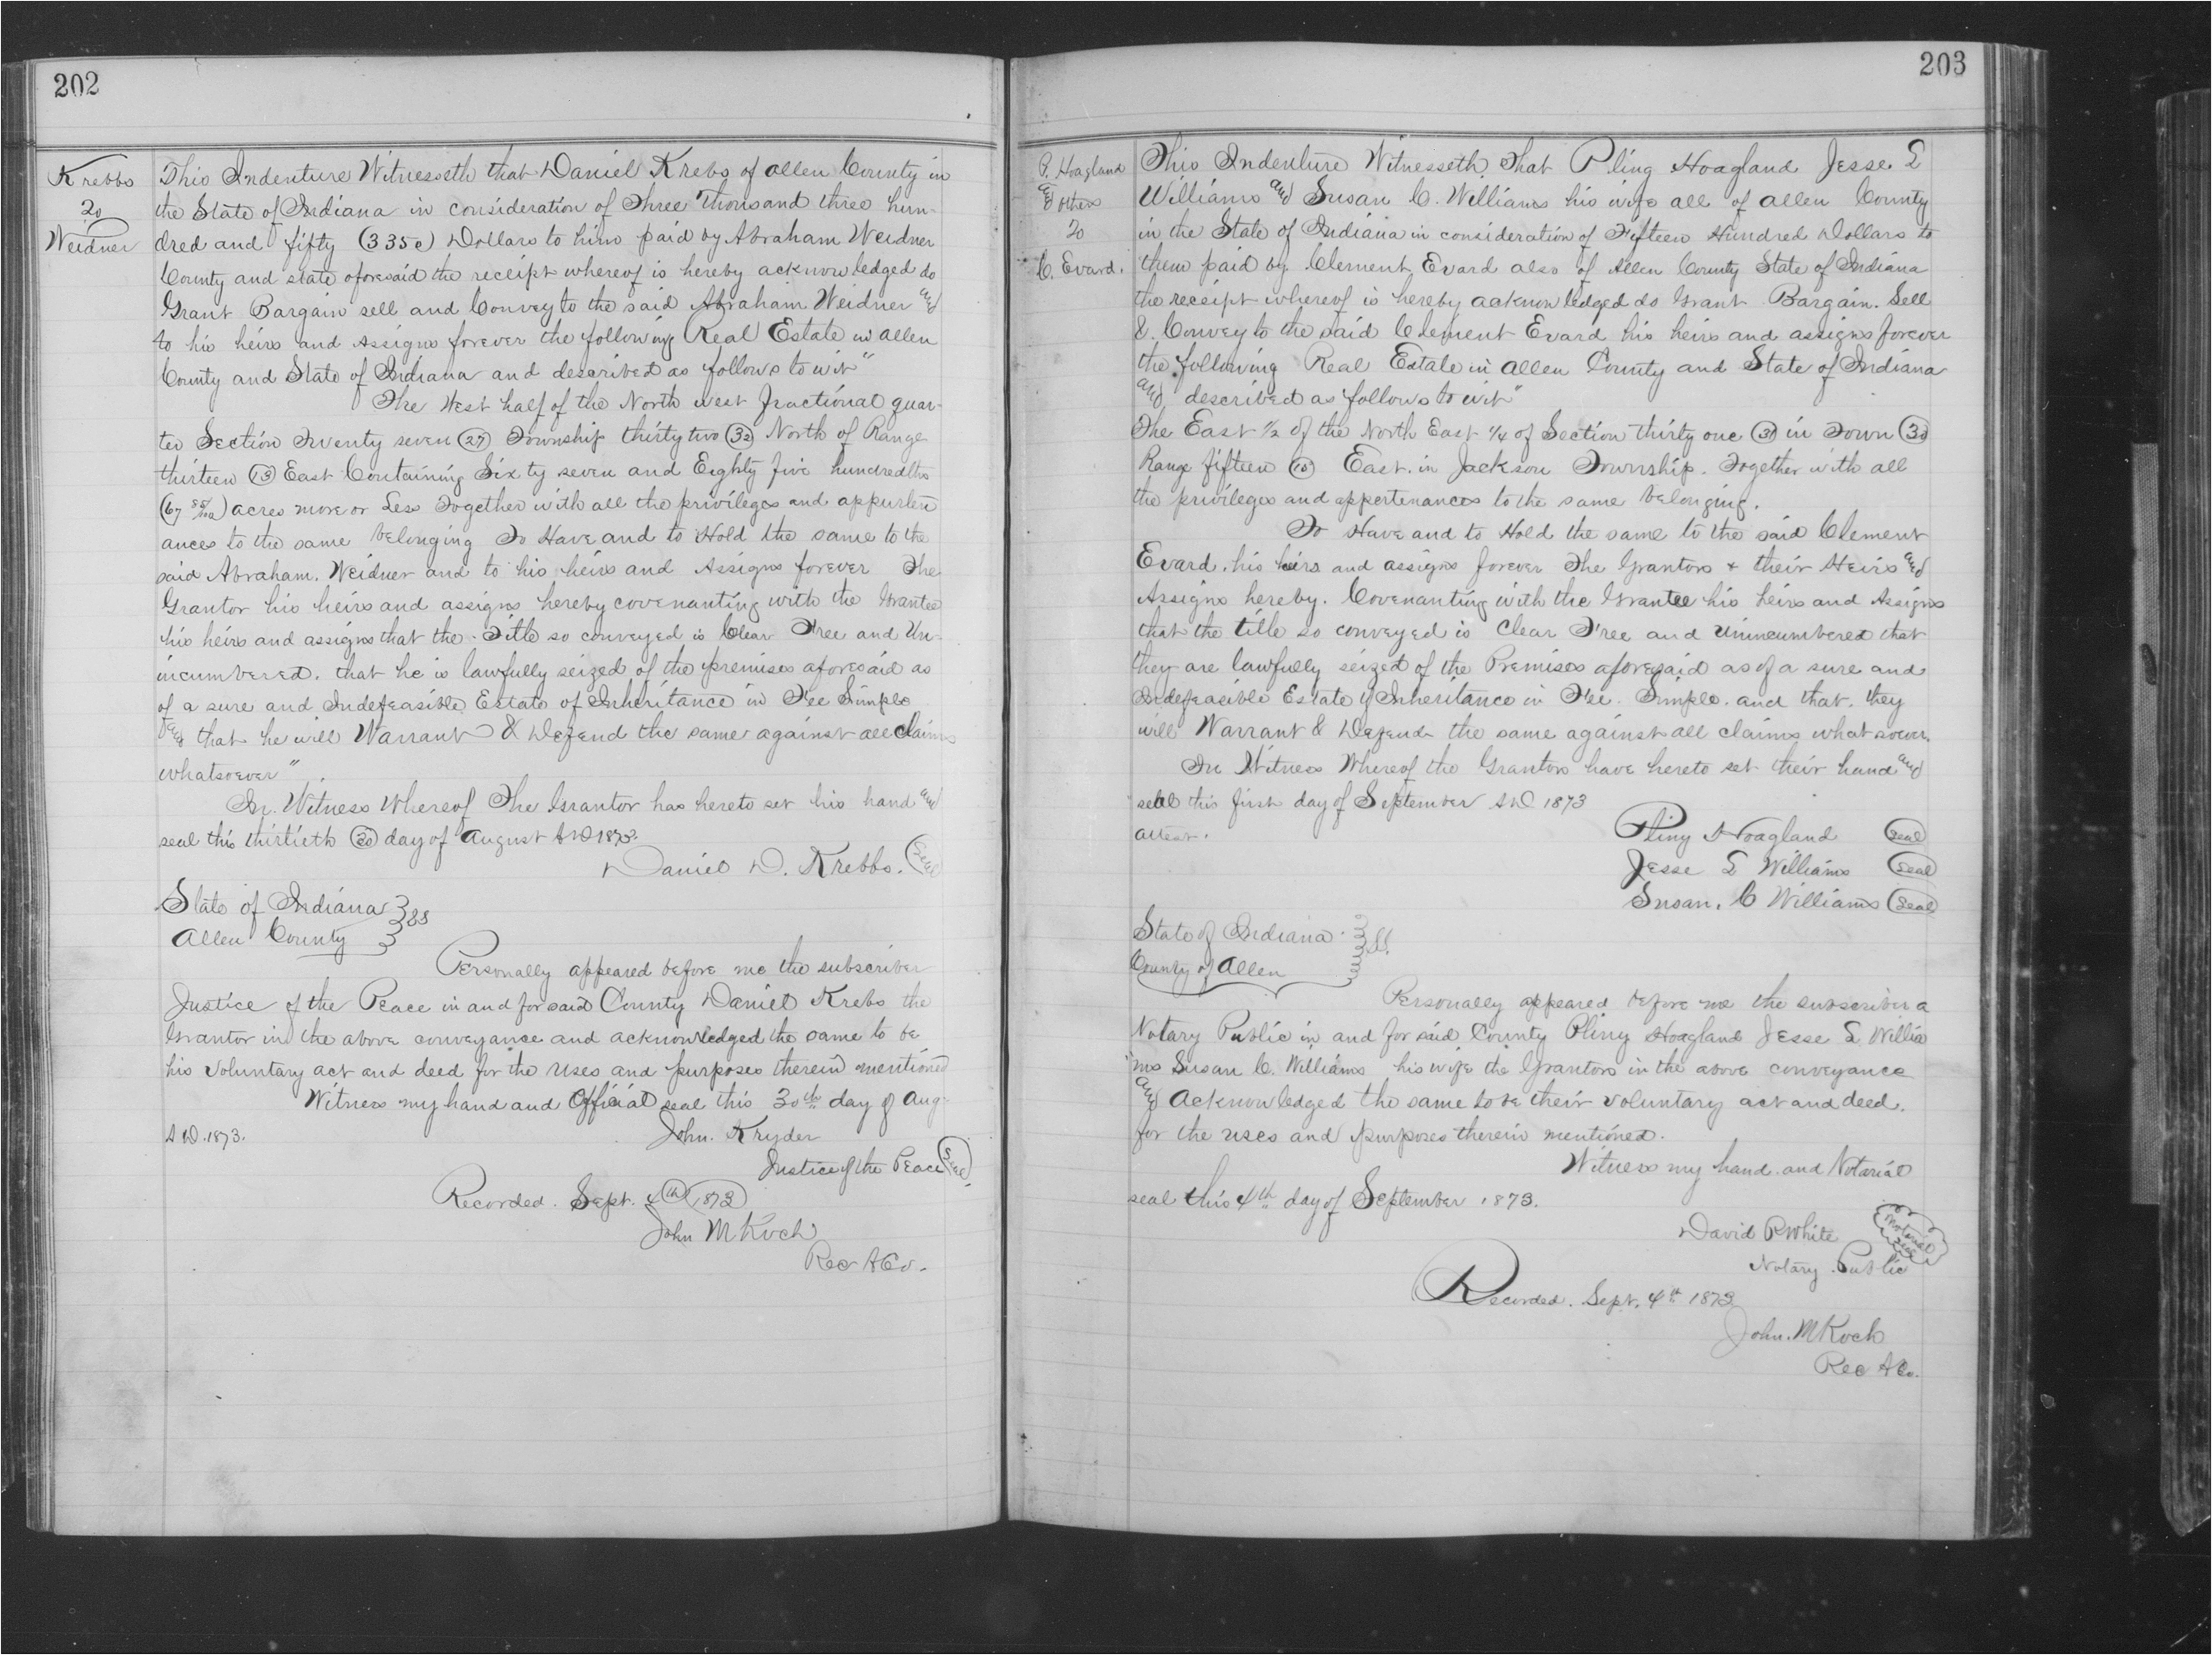 202
Krebbs
To
Weidner
This Indenture Witnesseth that Daniel Krebs of Allen County in
the State of Indiana in consideration of Three Thousand three hun-
dred and fifty (3350) Dollars to him paid by Abraham Weidner
County and state aforesaid the receipt whereof is hereby acknowledged do
Grant Bargain sell and Convey to the said Abraham Weidner and
to his heirs and Assigns forever the following Real Estate in Allen
County and State of Indiana and described as follows to wit"
The West half of the North west fractional quar-
ter Section Twenty seven (27) Township thirty two (32) North of Range
thirteen (13) East Containing Sixty seven and Eighty five hundredths
(67 85/100) acres more or Less Together with all the privileges and appurten
ances to the same belonging To Have and to Hold the same to the
said Abraham. Weidner and to his heirs and Assigns forever The
Grantor his heirs and assigns hereby covenanting with the Grantee
his heirs and assigns that the Title so conveyed is Clear Free and Un-
incumbered. that he is lawfully seized of the premises aforesaid as
of a sure and Indefeasible Estate of Inheritance in Fee Simple
and that he will Warrant & Defend the same against all claims
whatsoever"
In Witness Whereof The Grantor has hereto set his hand and
seal this thirtieth (30) day of August A D 1873
Daniel D. Krebbs. (Seal)
State of Indiana } SS
Allen County }
Personally appeared before me the subscriber
Justice of the Peace in and for said County Daniel Krebs the
Grantor in the above conveyance and acknowledged the same to be
his voluntary act and deed for the uses and purposes therein mentioned
Witness my hand and Official seal this 30th day of Aug-
A D. 1873.
John. Kryder
Justice of the Peace (Seal)
Recorded. Sept. 4th 1873
John M Koch
Rec A Co.
203
P. Hoagland
& others
To
C. Evard.
This Indenture Witnesseth, That Pliny Hoagland Jesse L
Williams and Susan C. Williams his wife all of Allen County
in the State of Indiana in consideration of Fifteen Hundred Dollars to
them paid by Clement Evard also of Allen County State of Indiana
the receipt whereof is hereby acknowledged do Grant Bargain. Sell
& Convey to the said Clement Evard his heirs and assigns forever
the following Real Estate in Allen County and State of Indiana
and described as follows to wit"
The East 1/2 of the North East 1/4 of Section thirty one (31) in Town (30)
Range fifteen (15) East. in Jackson Township. Together with all
the privileges and appertenances to the same belonging.
To Have and to Hold the same to the said Clement
Evard. his heirs and assigns forever The Grantors + their Heirs and
Assigns hereby. Covenanting with the Grantee his heirs and Assigns
that the title so conveyed is Clear Free and Unincumbered that
they are lawfully seized of the Premises aforesaid as of a sure and
Indefeasible Estate of Inheritance in Fee. Simple. and that. they
will Warrant & Defend the same against all claims whatsoever.
In Witness Whereof the Grantors have hereto set their hand and
seal this first day of September A D 1873
attest.
Pliny Hoagland (Seal)
Jesse L Williams (Seal)
Susan. C Williams (Seal)
State of Indiana } SS
County of Allen
Personally appeared before me the subscriber a
Notary Public in and for said County Pliny Hoagland Jesse L Willia
ms Susan C. Williams his wife the Grantors in the above conveyance
and Acknowledged the same to be their voluntary act and deed.
for the uses and purposes therein mentioned.
Witness my hand and Notarial
seal this 4th day of September 1873.
David P White
Notarial Seal
Notary Public
Recorded. Sept. 4th 1873
John. M Koch
Rec A Co.